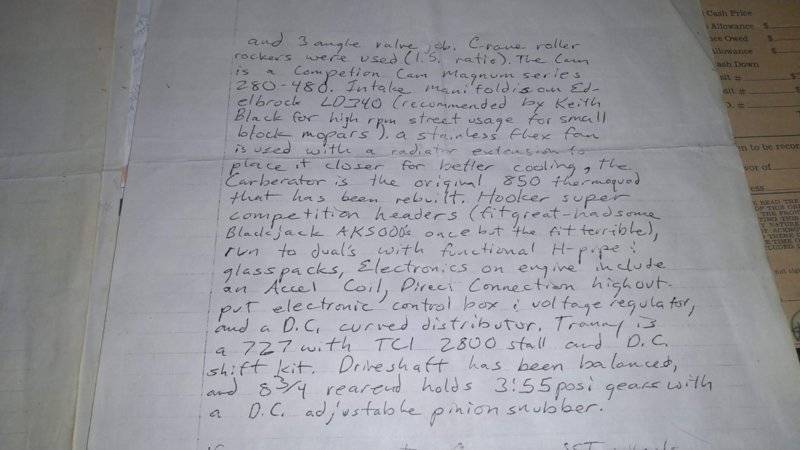 and 3 angle valve job. Crane roller
rockers were used (1.5. ratio). The Cam
is a Competion Cam Magnum series
280-480. Intake manifold is an Ed-
elbrock LD340 (recommended by Keith
Black for high rpm street usage for small
block mopars). a stainless flex fan
is used with a radiator extension to
place it closer for better cooling, the
Carberator is the original 850 thermoquad
that has been rebuilt. Hooker super
competition headers (fit great-had some
Blackjack AK5000's once but the fit terrible),
run to dual's with functional H-pipe &
glasspacks, Electronics on engine include
an Accel Coil, Direct Connection high out-
put electronic control box & voltage regulator,
and a D.C. curved distributor. Tranny is
a 727 with TCI 2800 stall and D.C.
shift kit. Driveshaft has been balanced,
and 8 3/4 rearend holds 3:55 posi gears with
a D.C. adjustable pinion snubber.
Cash Price
Allowance $
ce Owed $
llowance $
ash Down
sit # $
sit #
en to be recor
vor of
ess